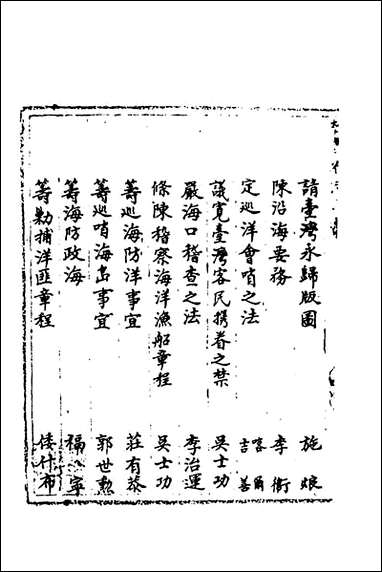 請臺灣永歸版圖 施娘
陳沿海要務 李衛
定巡洋會哨之法 喀爾吉善
議寬臺灣客民携眷之禁 吳士功
嚴海口稽查之法 李治運
條陳稽察海洋漁船章程 吳士功
籌巡海防洋事宜 莊有恭
籌巡哨海島事宜 郭世勳
籌海防政海 福寧
籌勦捕洋匪章程 倭什布